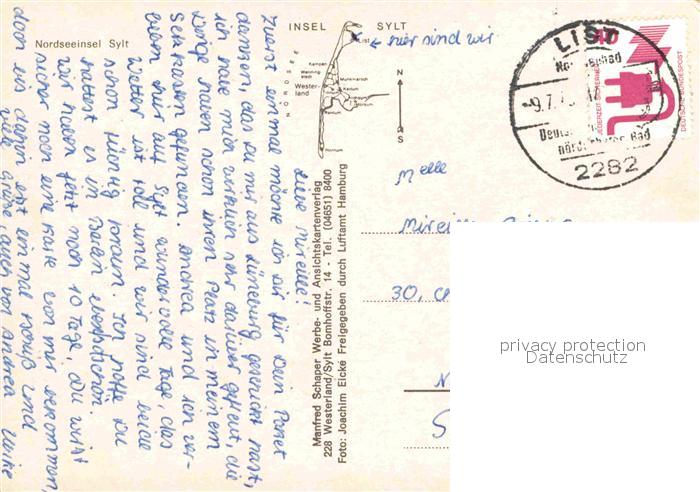 Nordseeinsel Sylt
INSEL SYLT
NORDSEE
List
Kampen
Wenning-
stedt
Wester-
land
Munkmarsch
Keitum
Morsum
Hörnum
N
S
← hier sind wir
LIST
Nordseebad
9.7.
Deutschlands
nördlichstes Bad
2282
JEDERZEIT SICHERHEIT
DEUTSCHE BUNDESPOST
40
Manfred Schaper Werbe- und Ansichtskartenverlag
228 Westerland/Sylt Bomhoffstr. 14 - Tel. (04651) 8400
Foto: Joachim Eicke Freigegeben durch Luftamt Hamburg
Liebe Mireille!
Zuerst einmal möchte ich dir für Dein Paket
danken, das du mir aus Lüneburg geschickt hast,
ich habe mich wirklich sehr darüber gefreut, die
Dinge haben schon ihren Platz in meinem
gefunden. Andrea und ich ver-
leben hier auf Sylt wundervolle Tage, das
Wetter ist toll und wir sind beide
schon tüchtig braun. Ich hoffe Du
hattest es in auch schön.
Wir haben jetzt noch 10 Tage, du wirst
sicher noch eine Karte von mir bekommen,
doch bis dahin erst einmal tschüß und
viele Grüße, auch von Andrea
Melle
30,
privacy protection
Datenschutz